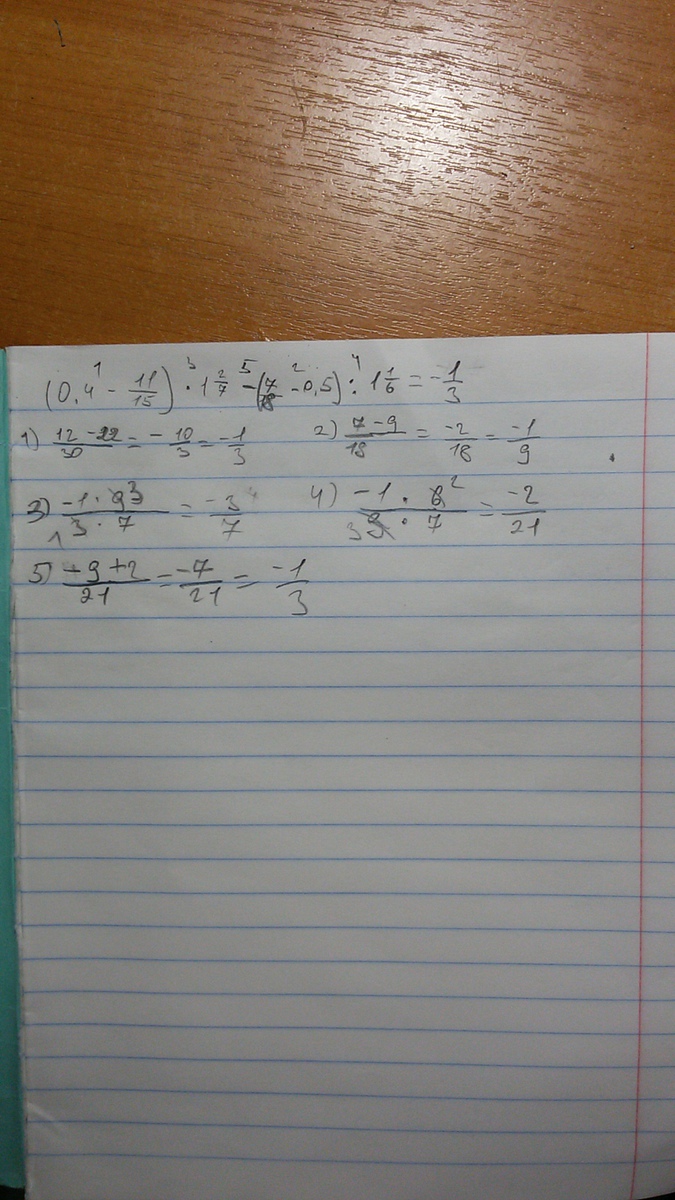 (0,4 - 11/15) · 1 2/7 - (7/18 - 0,5) : 1 1/6 = -1/3
1) 12-22/30 = -10/3 = -1/3 2) 7-9/18 = -2/18 = -1/9
3) -1 · 9 3/1 3 · 7 = -3/7 4) -1 · 6 2/3 9 · 7 = -2/21
5) -9+2/21 = -7/21 = -1/3